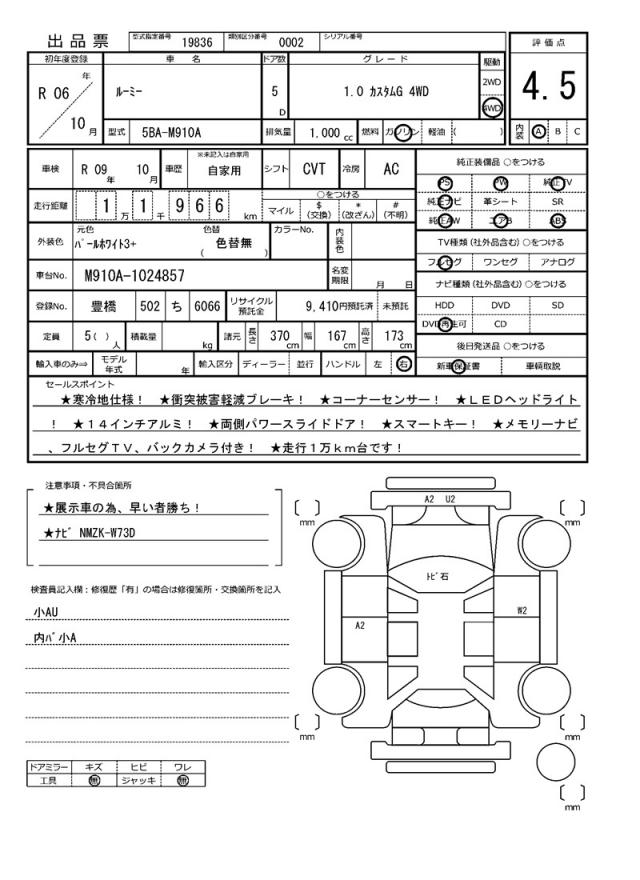 出品票 型式指定番号 19836 類別区分番号 0002 シリアル番号
評価点
4.5
初年度登録 車名 ドア数 グレード 駆動
R 06 年 10 月 ルーミー 5 D 1.0 カスタムG 4WD 2WD 4WD
型式 5BA-M910A 排気量 1,000 cc 燃料 ガソリン 軽油 ( ) 内装 A B C
車検 R 09 年 10 月 車歴 ※未記入は自家用 自家用 シフト CVT 冷房 AC
純正装備品 ○をつける
PS PW 純正TV
純正ナビ 革シート SR
純正AW エアB ABS
走行距離 1 万 1 千 9 6 6 km
○をつける
マイル $ (交換) * (改ざん) # (不明)
外装色 元色 パールホワイト3+ 色替 ( 色替無 ) カラーNo. 内装色
TV種類 (社外品含む) ○をつける
フルセグ ワンセグ アナログ
車台No. M910A-1024857 名変期限 月 日
ナビ種類 (社外品含む) ○をつける
HDD DVD SD
DVD再生可 CD
登録No. 豊橋 502 ち 6066 リサイクル預託金 9,410円預託済 未預託
定員 5( ) 人 積載量 kg 諸元 長さ 370 cm 幅 167 cm 高さ 173 cm
後日発送品 ○をつける
新車保証書 車輌取説
輸入車のみ⇒ モデル年式 年 輸入区分 ディーラー 並行 ハンドル 左 右
セールスポイント
★寒冷地仕様! ★衝突被害軽減ブレーキ! ★コーナーセンサー! ★LEDヘッドライト
! ★14インチアルミ! ★両側パワースライドドア! ★スマートキー! ★メモリーナビ
、フルセグTV、バックカメラ付き! ★走行1万km台です!
注意事項・不具合箇所
★展示車の為、早い者勝ち!
★ナビ NMZK-W73D
検査員記入欄:修復歴「有」の場合は修復箇所・交換箇所を記入
小AU
内バ小A
ドアミラー キズ ヒビ ワレ
工具 無 ジャッキ 無
A2 U2
mm
mm
トビ石
W2
A2
mm
mm
mm